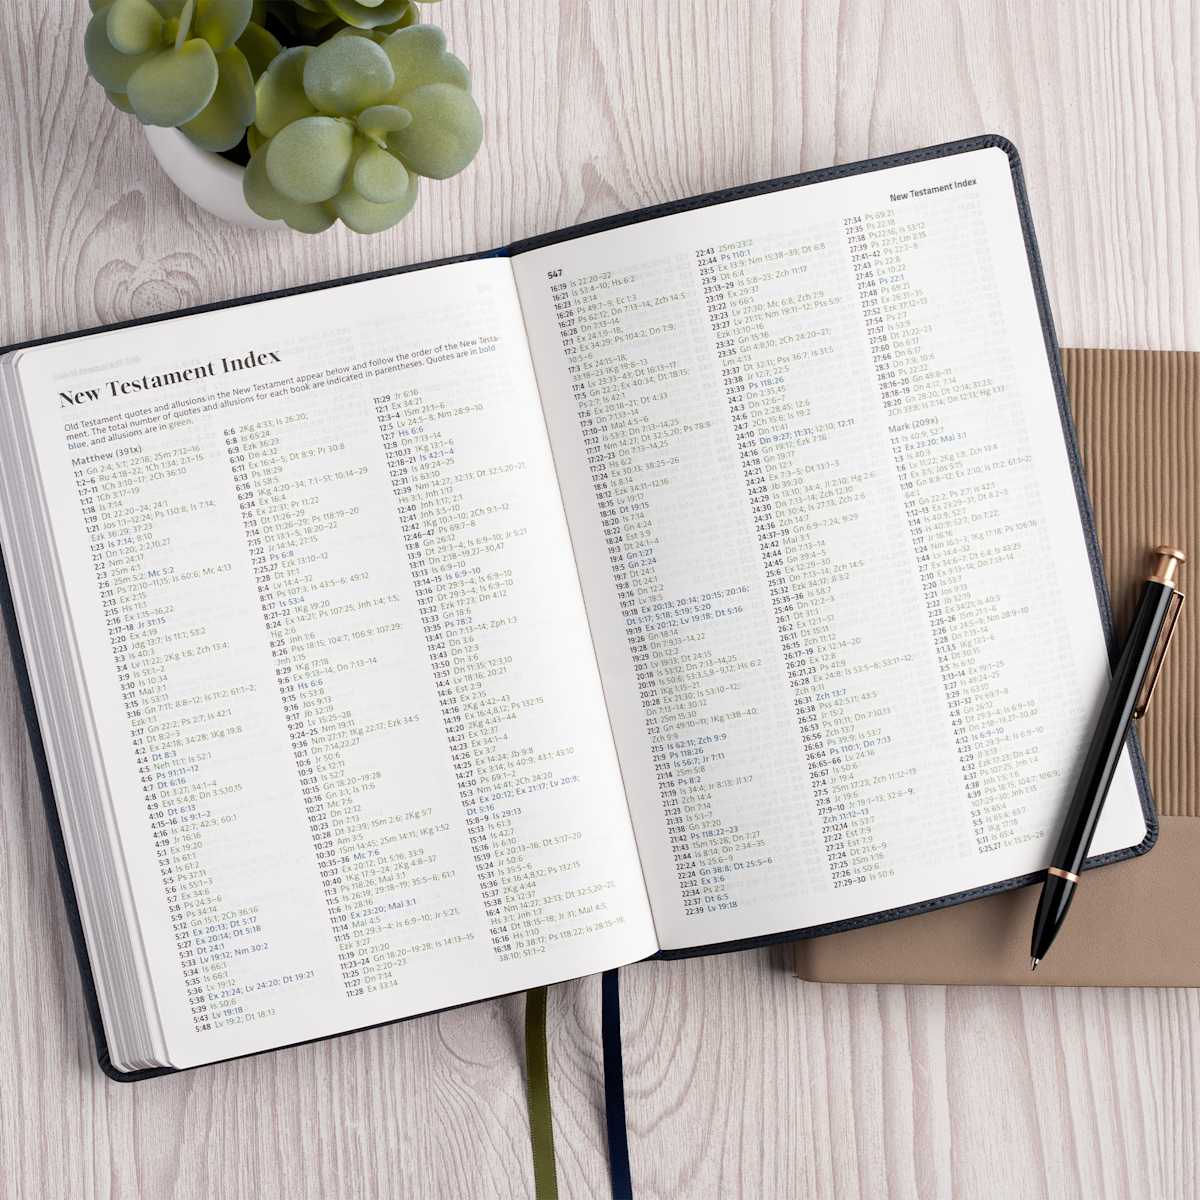 New Testament Index
Old Testament quotes and allusions in the New Testament appear below and follow the order of the New Testa-
ment. The total number of quotes and allusions for each book are indicated in parentheses. Quotes are in bold
blue, and allusions are in green.
Matthew (391x)
1:1 Gn 2:4; 5:1; 22:18; 2Sm 7:12–16
1:2–6 Ru 4:18–22; 1Ch 1:34; 2:1–15
1:7–11 1Ch 3:10–17; 2Ch 36:10
1:12 1Ch 3:17–19
1:18 Is 7:14
1:19 Dt 22:20–24; 24:1
Ezk 36:29; 37:23
1:23 Is 7:14; 8:10
2:1 Dn 1:20; 2:2,10,27
2:2 Nm 24:17
2:3 2Sm 4:1
2:6 2Sm 5:2; Mc 5:2
2:11 Ps 72:10–11,15; Is 60:6; Mc 4:13
2:13 Ex 2:15
2:15 Hs 11:1
2:16 Ex 1:15–16,22
2:17–18 Jr 31:15
2:20 Ex 4:19
2:23 Jdg 13:7; Is 11:1; 53:2
3:3 Is 40:3
3:9 Is 51:1–2
3:10 Is 10:34
3:11 Mal 3:1
3:15 Is 53:11
3:16 Gn 7:11; 8:8–12; Is 11:2; 61:1–2;
Ezk 1:1
3:17 Gn 22:2; Ps 2:7; Is 42:1
4:1 Dt 8:2–3
4:2 Ex 24:18; 34:28; 1Kg 19:8
4:4 Dt 8:3
4:5 Neh 11:1; Is 52:1
4:6 Ps 91:11–12
4:7 Dt 6:16
4:8 Dt 3:27; 34:1–4
4:9 Est 5:4,8; Dn 3:5,10,15
4:10 Dt 6:13
4:15–16 Is 9:1–2
4:16 Is 42:7; 42:9; 60:1
4:19 Jr 16:16
5:1 Ex 19:20
5:3 Is 61:1
5:4 Is 61:2
5:5 Ps 37:11
5:6 Is 55:1–3
5:7 Ex 34:6
5:8 Ps 24:3–6
5:9 Ps 34:14
5:12 Gn 15:1; 2Ch 36:16
5:21 Ex 20:13; Dt 5:17
5:27 Ex 20:14; Dt 5:18
5:31 Dt 24:1
5:33 Lv 19:12; Nm 30:2
5:34 Is 66:1
5:35 Is 66:1
5:36 Lv 19:12
5:38 Ex 21:24; Lv 24:20; Dt 19:21
5:39 Is 50:6
5:43 Lv 19:18
5:48 Lv 19:2; Dt 18:13
6:6 2Kg 4:33; Is 26:20;
6:8 Is 65:24
6:9 Ezk 36:23
6:10 Dn 4:32
6:11 Ex 16:4–5; Dt 8:9; Pr 30:8
6:13 Ps 18:29
6:16 Is 58:5
6:34 Ex 16:4
7:6 Ex 22:31; Pr 11:22
7:13 Dt 11:26–29
7:14 Dt 11:26–29; Ps 118:19–20
7:15 Dt 13:1–5; 18:20–22
7:22 Jr 14:14; 27:15
7:23 Ps 6:8
7:25,27 Ezk 13:10–12
7:28 Dt 31:1
8:4 Lv 14:4–32
8:11 Ps 107:3; Is 43:5–6; 49:12
8:17 Is 53:4
8:21–22 1Kg 19:20
8:24 Ex 14:21; Ps 107:25; Jnh 1:4; 1:5;
Hg 2:6
8:25 Jnh 1:6
8:26 Pss 18:15; 104:7; 106:9; 107:29;
Jnh 1:15
8:29 1Kg 17:18
9:6 Ex 9:13–14; Dn 7:13–14
9:13 Hs 6:6
9:15 Is 53:8
9:16 Jos 9:13
9:17 Jb 32:19
9:20 Lv 15:25–28
9:24–25 Nm 19:11
9:36 Nm 27:17; 1Kg 22:17; Ezk 34:5
10:1 Dn 7:14,22,27
10:6 Jr 50:6
10:9 Ex 12:11
10:13 Is 52:7
10:15 Gn 18:20–19:28
10:16 Gn 3:1; Is 11:6
10:21 Mc 7:6
10:22 Dn 12:12
10:23 Dn 7:13
10:28 Dt 32:39; 1Sm 2:6; 2Kg 5:7
10:29 Am 3:5
10:30 1Sm 14:45; 2Sm 14:11; 1Kg 1:52
10:35–36 Mc 7:6
10:37 Ex 20:12; Dt 5:16; 33:9
10:40 1Kg 17:9–24; 2Kg 4:8–37
11:3 Ps 118:26; Mal 3:1
11:5 Is 26:19; 29:18–19; 35:5–6; 61:1
11:6 Is 28:16
11:10 Ex 23:20; Mal 3:1
11:14 Mal 4:5
11:15 Dt 29:3–4; Is 6:9–10; Jr 5:21;
Ezk 3:27
11:19 Dt 21:20
11:23–24 Gn 18:20–19:28; Is 14:13–15
11:25 Dn 2:20–23
11:27 Dn 7:14
11:28 Ex 33:14
11:29 Jr 6:16
12:1 Ex 34:21
12:3–4 1Sm 21:1–6
12:5 Lv 24:5–8; Nm 28:9–10
12:7 Hs 6:6
12:8 Dn 7:13–14
12:10,13 1Kg 13:1–6
12:18–21 Is 42:1–4
12:29 Is 49:24–25
12:31 Is 63:10
12:39 Nm 14:27; 32:13; Dt 32:5,20–21;
Hs 3:1; Jnh 1:17
12:40 Jnh 1:17; 2:1
12:41 Jnh 3:5–10
12:42 1Kg 10:1–10; 2Ch 9:1–12
12:46–47 Ps 69:7–8
13:8 Gn 26:12
13:9 Dt 29:3–4; Is 6:9–10; Jr 5:21
13:11 Dn 2:18–19,27–30,47
13:13 Is 6:9–10
13:14–15 Is 6:9–10
13:16 Dt 29:3–4; Is 6:9–10
13:17 Dt 29:3–4; Is 6:9–10
13:32 Ezk 17:23; Dn 4:12
13:33 Gn 18:6
13:35 Ps 78:2
13:41 Dn 7:13–14; Zph 1:3
13:42 Dn 3:6
13:43 Dn 12:3
13:50 Dn 3:6
14:4 Lv 18:16; 20:21
14:6 Est 2:9
14:13 Ex 2:15
14:16 2Kg 4:42–43
14:19 Ex 16:4,8,12; Ps 132:15
14:20 2Kg 4:43–44
14:21 Ex 12:37
14:23 Ex 34:1–4
14:27 Ex 3:14; Is 40:9; 43:1; 43:10
14:30 Ps 69:1–2
15:3 Nm 14:41; 2Ch 24:20
15:4 Ex 20:12; Ex 21:17; Lv 20:9;
Dt 5:16
15:8–9 Is 29:13
15:13 Is 61:3
15:14 Is 42:7
15:19 Ex 20:13–16; Dt 5:17–20
15:24 Jr 50:6
15:31 Is 35:5–6
15:36 Ex 16:4,8,12; Ps 132:15
15:37 2Kg 4:44
15:38 Ex 12:37
16:4 Nm 14:27; 32:13; Dt 32:5,20–21;
Hs 3:1; Jnh 1:7
16:14 Dt 18:15–18; Jr 3:1; Mal 4:5
16:16 Hs 1:10
16:18 Jb 38:17; Ps 118:22; Is 28:15–19;
38:10; 51:1–2
547
New Testament Index
16:19 Is 22:20–22
16:21 Is 53:4–10; Hs 6:2
16:23 Is 8:14
16:26 Ps 49:7–9; Ec 1:3
16:27 Ps 62:12; Dn 7:13–14; Zch 14:5
16:28 Dn 7:13–14
17:1 Ex 24:1,9–18;
17:2 Ex 34:29; Ps 104:2; Dn 7:9;
17:5 Gn 22:2; Ex 40:34; Dt 18:15;
Ps 2:7; Is 42:1
17:9 Dn 7:13–14
17:10–11 Mal 4:5–6
17:12 Is 53:3; Dn 7:13–14,25
17:22–23 Dn 7:13–14,25
17:23 Hs 6:2
17:24 Ex 30:13; 38:25–26
18:6 Is 8:14
18:12 Ezk 34:11–12,16
18:15 Lv 19:17
18:16 Dt 19:15
18:20 Is 7:14
18:22 Gn 4:24
19:3 Dt 24:1–4
19:4 Gn 1:27
19:5 Gn 2:24
19:7 Dt 24:1
19:8 Dt 24:1
19:16 Dn 12:2
19:17 Lv 18:5
19:18 Ex 20:13; 20:14; 20:15; 20:16;
Dt 5:17; 5:18; 5:19; 5:20
19:19 Ex 20:12; Lv 19:18; Dt 5:16
19:26 Gn 18:14
19:28 Dn 7:9,13–14,22
19:29 Dn 12:2
20:1 Lv 19:13; Dt 24:15
20:18 Is 53:12; Dn 7:13–14,25
20:21 1Kg 1:15–21
20:28 Ex 21:30; Is 53:10–12;
Dn 7:13–14; 30:12
21:1 2Sm 15:30
21:2 Gn 49:10–11; 1Kg 1:38–40;
Zch 9:9
21:5 Is 62:11; Zch 9:9
21:9 Ps 118:26
21:13 Is 56:7; Jr 7:11
21:14 2Sm 5:8
21:16 Ps 8:2
21:19 Is 34:4; Jr 8:13; Jl 1:7
21:21 Zch 14:4
21:23 Dn 7:14
21:33 Is 5:1–7
21:38 Gn 37:20
21:42 Ps 118:22–23
21:43 1Sm 15:28; Dn 7:27
21:44 Is 8:14; Dn 2:34–35
22:2,4 Is 25:6–9
22:24 Gn 38:8; Dt 25:5–6
22:32 Ex 3:6
22:34 Ps 2:2
22:37 Dt 6:5
22:39 Lv 19:18
22:43 2Sm 23:2
22:44 Ps 110:1
23:5 Ex 13:9; Nm 15:38–39; Dt 6:8
23:9 Dt 6:4
23:13–29 Is 5:8–23; Zch 11:17
23:19 Ex 29:37
23:22 Is 66:1
23:23 Lv 27:30; Mc 6:8; Zch 7:9
Ezk 13:10–16
23:32 Gn 15:16
23:35 Gn 4:8,10; 2Ch 24:20–21;
Lm 4:13
23:37 Dt 32:11; Pss 36:7; Is 31:5
23:38 Jr 12:7; 22:5
23:39 Ps 118:26
24:2 Dn 2:35,45
24:3 Dn 12:6–7
24:6 Dn 2:28,45; 12:6
24:7 2Ch 15:6; Is 19:2
24:10 Dn 11:41
24:15 Dn 9:27; 11:31; 12:10; 12:11
24:16 Gn 19:17; Ezk 7:16
24:18 Gn 19:17
24:21 Dn 12:1
24:24 Ex 7:3–5; Dt 13:1–3
24:28 Jb 39:30
24:29 Is 13:10; 34:4; Jl 2:10; Hg 2:6
24:30 Dn 7:13–14; Zch 12:10
24:31 Dt 30:4; Is 27:13; Zch 2:6
24:36 Zch 14:7
24:37–39 Gn 6:9–7:24; 9:29
24:42 Mal 3:1
24:44 Dn 7:13–14
24:45 Gn 39:4–5
25:6 Ex 12:29–30
25:31 Dn 7:13–14; Zch 14:5
25:32 Ezk 34:17; Jl 3:2
25:35–36 Is 58:7
25:46 Dn 12:2–3
26:1 Dt 31:1
26:2 Ex 12:1–51
26:11 Dt 15:11
26:15 Zch 11:12
26:17–19 Ex 12:14–20
26:20 Ex 12:8
26:21,23 Ps 41:9
26:28 Ex 24:8; Is 53:5–6; 53:11–12;
Zch 9:11
26:31 Zch 13:7
26:38 Pss 42:5,11; 43:5
26:52 Jr 15:2
26:53 Ps 91:11; Dn 7:10,13
26:56 Zch 13:7
26:63 Ps 39:9; Is 53:7
26:64 Ps 110:1; Dn 7:13
26:65–66 Lv 24:16
26:67 Is 50:6
27:4 Jr 19:4
27:5 2Sm 17:23; Zch 11:12–13
27:8 Jr 19:6
27:9–10 Jr 19:1–13; 32:6–9;
Zch 11:12–13
27:12,14 Is 53:7
27:22 Est 7:9
27:23 Est 7:9
27:24 Dt 21:6–9
27:25 2Sm 1:16
27:26 Is 50:6
27:29–30 Is 50:6
27:34 Ps 69:21
27:35 Ps 22:18
27:38 Ps 22:16; Is 53:12
27:39 Ps 22:7; Lm 2:15
27:43 Ps 22:8
27:45 Ex 10:22
27:46 Ps 22:1
27:48 Ps 69:21
27:51 Ex 26:31–35
27:52 Ezk 37:12–13
27:54 Ps 2:7
27:57 Is 53:9
27:58 Dt 21:22–23
27:60 Dn 6:17
27:66 Dn 6:17
28:3 Dn 7:9; 10:6
28:10 Ps 22:22
28:16–20 Gn 49:8–11
28:18–19 Dn 4:17; 7:14
Mark (209x)
1:1 Is 40:9; 52:7
1:2 Ex 23:20; Mal 3:1
1:3 Is 40:3
1:14 Is 40:9; 52:7
1:15 Is 40:9; 52:7; Dn 7:22
1:17 Jr 16:16
1:44 Lv 14:4–32
2:20 Is 53:7
2:21 Jos 9:13
2:22 Jb 32:19
2:23 Ex 34:21; Is 40:9
2:25–26 1Sm 21:1–6
2:26 Lv 24:5–9; Nm 28:9–10
2:28 Dn 7:13–14
3:4 Dt 30:15
3:5 Is 6:10
3:13–14 Ex 19:1–25
3:27 Is 49:24–25
3:29 Is 63:10
3:31–32 Ps 69:7–8
4:8 Gn 26:12
4:9 Dt 29:3–4; Is 6:9–10
4:11 Dn 2:18–19,27–30,47
4:12 Is 6:9–10
4:23 Dt 29:3–4; Is 6:9–10
4:32 Ezk 17:23; Dn 4:12
4:37 Ps 107:25; Jnh 1:4
4:38 Jnh 1:5; 1:6
4:39 Pss 18:15; 104:7; 106:9;
107:29–30; Jnh 1:15
5:3 Is 65:4
5:5 Is 65:4; 65:7
5:7 1Kg 17:18
5:11 Is 65:4
5:25,27 Lv 15:25–28